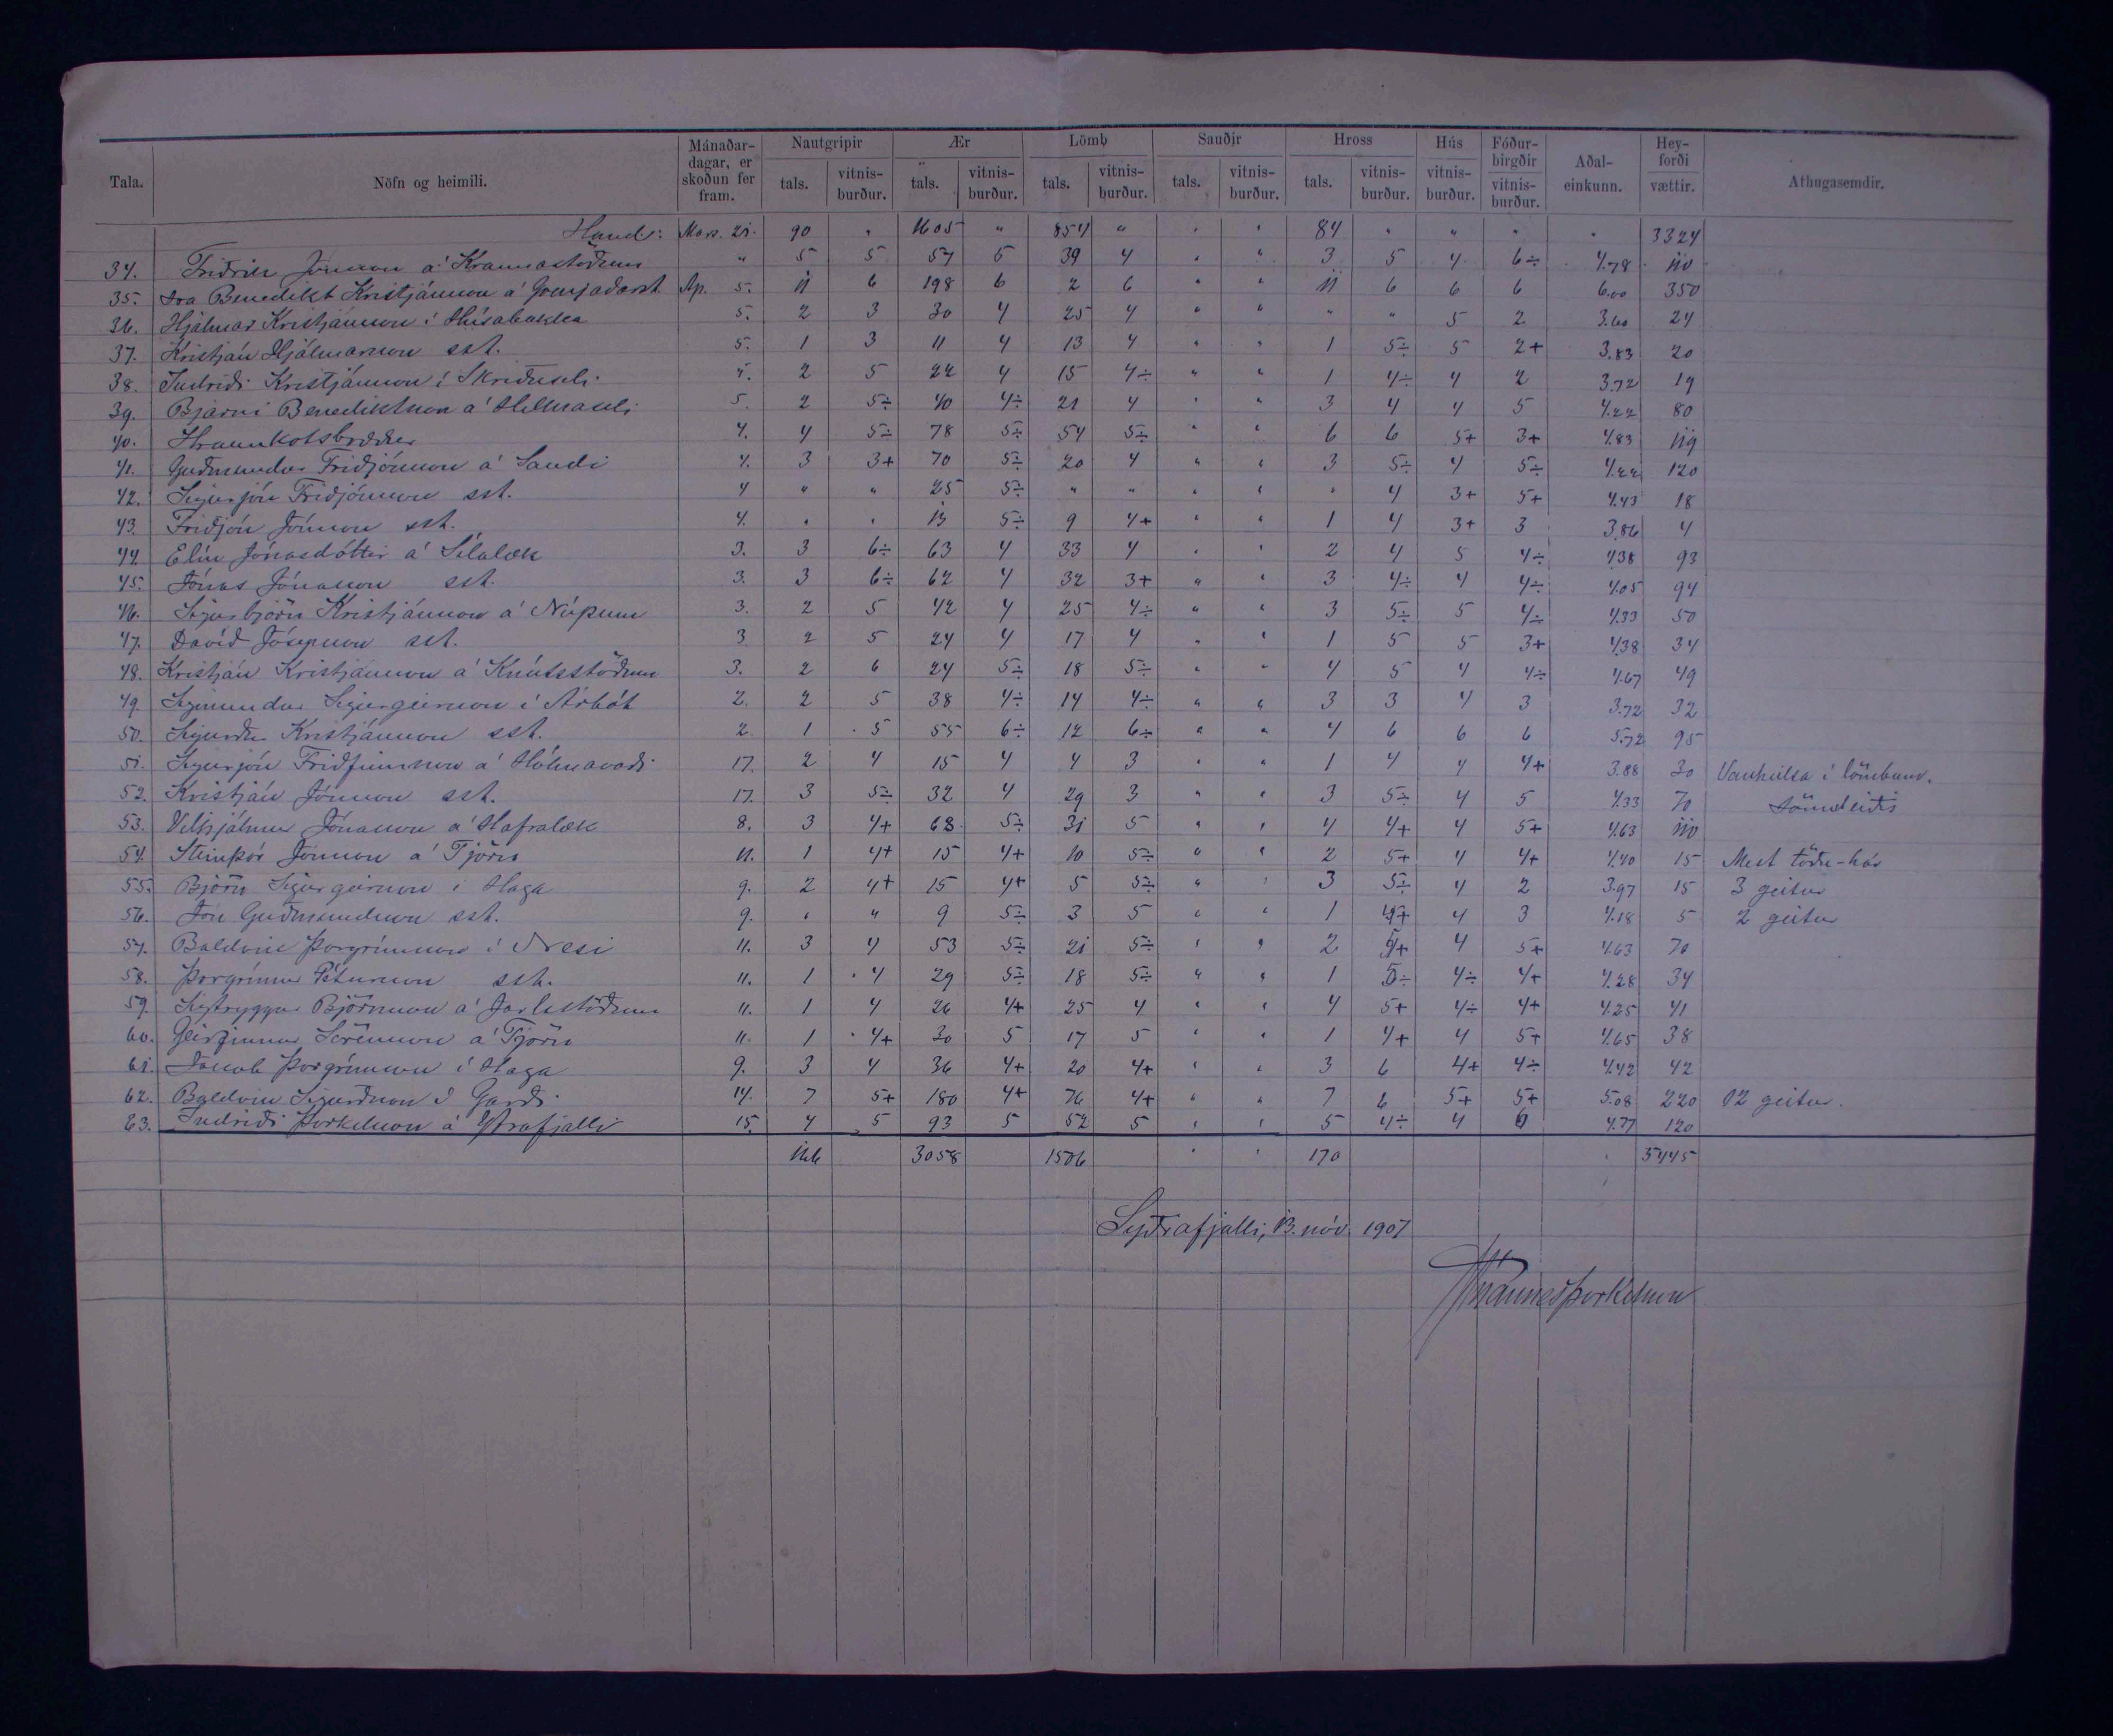 Tala. | Nöfn og heimili. | Mánaðar-dagar, er skoðun fer fram. | Nautgripir tals. | vitnis-burður. | Ær tals. | vitnis-burður. | Lömb tals. | vitnis-burður. | Sauðir tals. | vitnis-burður. | Hross tals. | vitnis-burður. | Hús vitnis-burður. | Fóður-birgðir vitnis-burður. | Aðal-einkunn. | Hey-forði vættir. | Athugasemdir.
Mars. 21. 90 " 1605 " 854 " " " 84 " " " " 3324
34. Friðrik Jónsson á Kraunastöðum " 5 5 57 5 39 4 " " 3 5 4 6÷ 4.78 110
35. sra Benedikt Kristjánsson á Grenjaðarst. Ap. 5. 11 6 198 6 2 6 " " 11 6 6 6 6.00 350
36. Hjálmar Kristjánsson í Hísabakka 5. 2 3 30 4 25 4 " " " " 5 2 3.60 24
37. Kristján Hjálmarsson sst. 5. 1 3 11 4 13 4 " " 1 5÷ 5 2+ 3.83 20
38. Indriði Kristjánsson í Skriðuseli 5. 2 5 22 4 15 4÷ " " 1 4÷ 4 2 3.72 19
39. Bjarni Benediktsson á Hellnaseli 5. 2 5÷ 40 4÷ 21 4 " " 3 4 4 5 4.22 80
40. Hraunkotsbræður 4. 4 5÷ 78 5÷ 54 5÷ " " 6 6 5+ 3+ 4.83 119
41. Guðmundur Friðjónsson á Sandi 4. 3 3+ 70 5÷ 20 4 " " 3 5÷ 4 5÷ 4.22 120
42. Sigurjón Friðjónsson sst. 4 " " 25 5÷ " " " " " 4 3+ 5+ 4.43 18
43. Friðjón Jónsson sst. 4. " " 13 5÷ 9 4+ " " 1 4 3+ 3 3.86 4
44. Elín Jónasdóttir á Sílalæk 3. 3 6÷ 63 4 33 4 " " 2 4 5 4÷ 4.38 93
45. Jónas Jónasson sst. 3. 3 6÷ 62 4 32 3+ " " 3 4÷ 4 4÷ 4.05 94
46. Sigurbjörn Kristjánsson á Núpum 3. 2 5 42 4 25 4÷ " " 3 5÷ 5 4÷ 4.33 50
47. Davíð Jósepsson sst. 3. 2 5 24 4 17 4 " " 1 5 5 3+ 4.38 34
48. Kristján Kristjánsson á Knútsstöðum 3. 2 6 24 5÷ 18 5÷ " " 4 5 4 4÷ 4.67 49
49. Sigmundur Sigurgeirsson í Árbót 2. 2 5 38 4÷ 14 4÷ " " 3 3 4 3 3.72 32
50. Sigurður Kristjánsson sst. 2. 1 5 55 6÷ 12 6÷ " " 4 6 6 6 5.72 95
51. Sigurjón Friðfinnsson á Hólmavaði 17. 2 4 15 4 4 3 " " 1 4 4 4+ 3.88 30 Vanhilsa í lömbum.
52. Kristján Jónsson sst. 17. 3 5÷ 32 4 29 3 " " 3 5÷ 4 5 4.33 70 sömuleiðis
53. Vilhjálmur Jónasson á Hafralæk 8. 3 4+ 68 5÷ 31 5 " " 4 4+ 4 5+ 4.63 110
54. Steinþór Jónsson á Tjörn 11. 1 4+ 15 4+ 10 5÷ " " 2 5+ 4 4+ 4.40 15 Mest töðu-há
55. Björn Sigurgeirsson í Haga 9. 2 4+ 15 4+ 5 5÷ " " 3 5÷ 4 2 3.97 15 3 geitur
56. Jón Guðmundsson sst. 9. " " 9 5÷ 3 5 " " 1 4+ 4 3 4.18 5 2 geitur
57. Baldvin Þorgrímsson í Nesi 11. 3 4 53 5÷ 21 5÷ " " 2 4+ 4 5+ 4.63 70
58. Þorgrímur Pétursson sst. 11. 1 4 29 5÷ 18 5÷ " " 1 5÷ 4÷ 4+ 4.28 34
59. Sigtryggur Björnsson á Jarlsstöðum 11. 1 4 26 4+ 25 4 " " 4 5+ 4÷ 4+ 4.25 41
60. Geirfinnur Sörensson á Tjörn 11. 1 4+ 30 5 17 5 " " 1 4+ 4 5+ 4.65 38
61. Jakob Þorgrímsson í Haga 9. 3 4 36 4+ 20 4+ " " 3 6 4+ 4÷ 4.42 42
62. Baldvin Sigurðsson í Garði 14. 7 5+ 180 4+ 76 4+ " " 7 6 5+ 5+ 5.08 220 12 geitur.
63. Indriði Þorkelsson á Ytrafjalli 15. 4 5 93 5 52 5 " " 5 4÷ 4 6 4.77 120
166 3058 1506 " " 170 " 5445
Syðrafjalli, 13. nóv. 1907
Jóhannes Þorkelsson